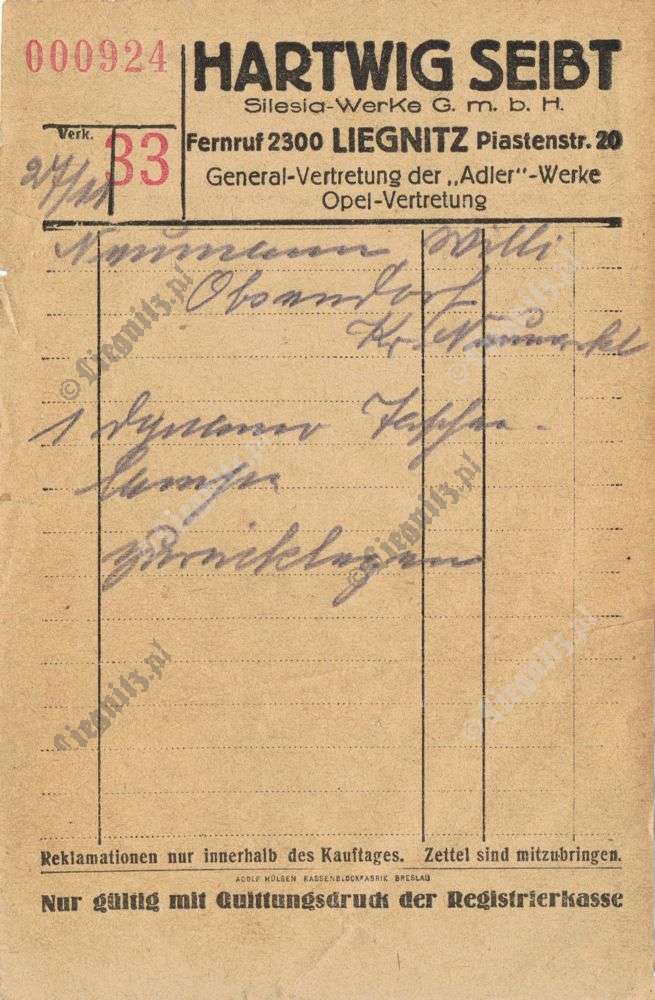 000924
HARTWIG SEIBT
Silesia-Werke G. m. b. H.
Verk.
33
Fernruf 2300 LIEGNITZ Piastenstr. 20
General-Vertretung der „Adler"-Werke
Opel-Vertretung
27/11
Naumann, Willi
Obsendorf
Kr. Neumarkt
1 Dynamo Taschen-
lampe
zurücklegen
© Liegnitz.pl
© Liegnitz.pl
Liegnitz.pl
© Liegnitz.pl
Reklamationen nur innerhalb des Kauftages. Zettel sind mitzubringen.
ADOLF HÜLSEN KASSENBLOCKFABRIK BRESLAU
Nur gültig mit Quittungsdruck der Registrierkasse